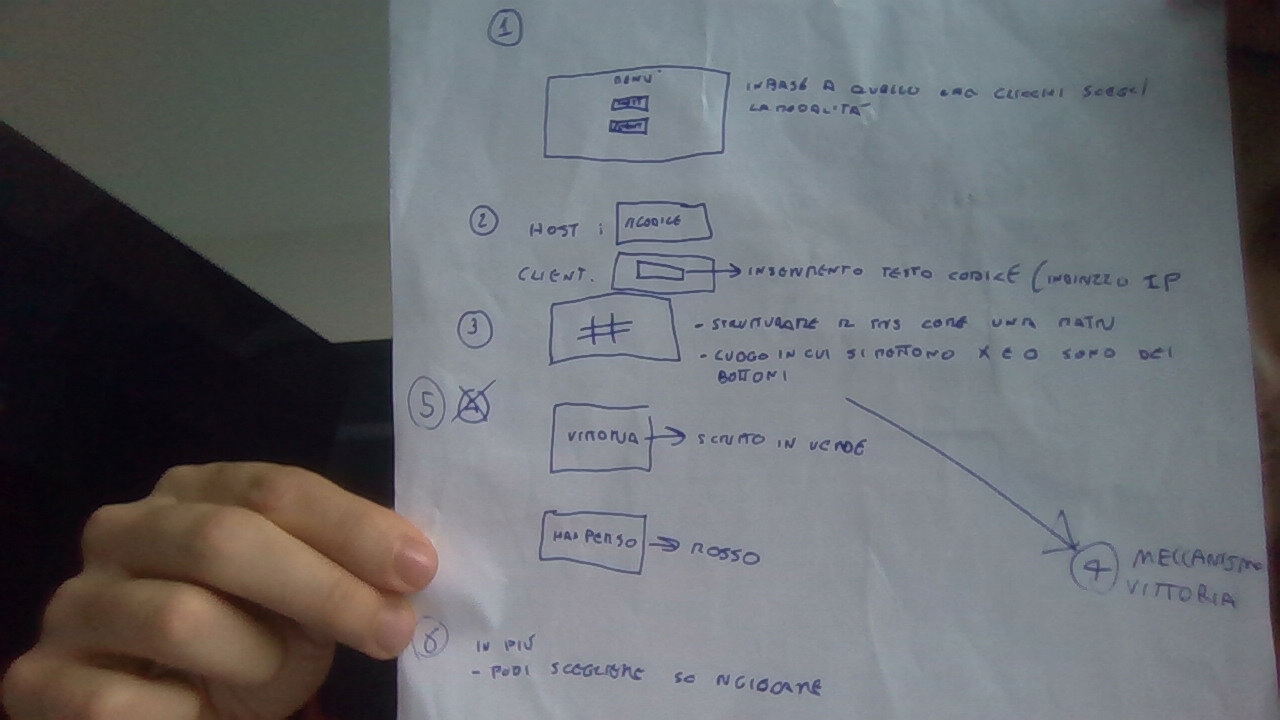 1
MENU
IN BASE A QUELLO CHE CLICCHI SCEGLI
LA MODALITÀ
2
HOST :
CODICE
CLIENT.
INSERIMENTO TESTO CODICE (INDIRIZZO IP
3
- STRUTTURARE IL TRIS COME UNA MATRI
- LUOGO IN CUI SI METTONO X E O SONO DEI
BOTTONI
5
VITTORIA
SCRITTO IN VERDE
HAI PERSO
ROSSO
4 MECCANISMO
VITTORIA
6
IN PIÙ
- PUOI SCEGLIERE SE RIGIOCARE